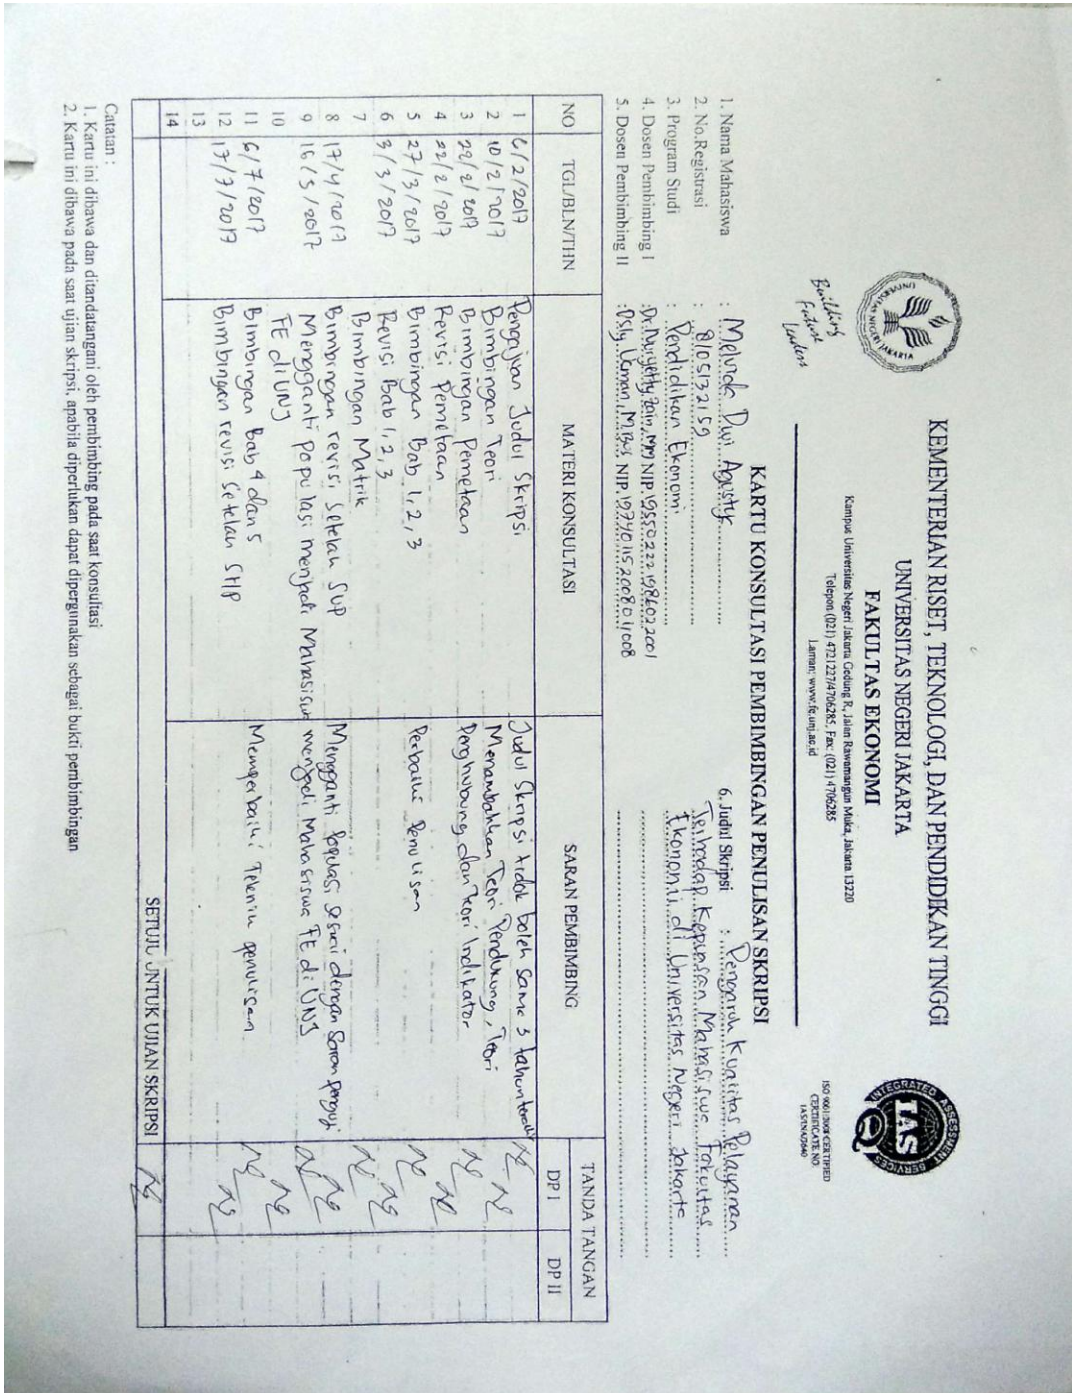 KEMENTERIAN RISET, TEKNOLOGI, DAN PENDIDIKAN TINGGI
UNIVERSITAS NEGERI JAKARTA
FAKULTAS EKONOMI
Kampus Universitas Negeri Jakarta Gedung R, Jalan Rawamangun Muka, Jakarta 13220
Telepon (021) 4721227/4706285, Fax: (021) 4706285
Laman: www.fe.unj.ac.id
UNIVERSITAS NEGERI JAKARTA
Building
Future
Leaders
INTEGRATED ASSESSMENT SERVICES
IAS
ISO 9001:2008 CERTIFIED
CERTIFICATE NO.
KARTU KONSULTASI PEMBIMBINGAN PENULISAN SKRIPSI
1. Nama Mahasiswa : Melynda Dwi Agusty
2. No.Registrasi : 8105132159
3. Program Studi : Pendidikan Ekonomi
4. Dosen Pembimbing I : Dr. Nuryetty Zain, MM NIP. 195502221986022001
5. Dosen Pembimbing II : Osly Usman, M.Bus NIP. 197401152008011008
6. Judul Skripsi : Pengaruh Kualitas Pelayanan
Terhadap Kepuasan Mahasiswa Fakultas
Ekonomi di Universitas Negeri Jakarta
NO TGL/BLN/THN MATERI KONSULTASI SARAN PEMBIMBING TANDA TANGAN
DP I DP II
1 6/2/2017 Pengajuan Judul Skripsi Judul Skripsi tidak boleh sama 3 tahun
2 10/2/2017 Bimbingan Teori Menambahkan Teori Pendukung, Teori
3 22/2/2017 Bimbingan Pemetaan Penghubung dan Teori Indikator
4 22/2/2017 Revisi Pemetaan
5 27/3/2017 Bimbingan Bab 1, 2, 3 Perbaiki Penulisan
6 3/3/2017 Revisi Bab 1, 2, 3
7 Bimbingan Matrik
8 17/4/2017 Bimbingan revisi setelah SUP Mengganti Populasi sesuai dengan Saran Penguji
9 16/5/2017 Mengganti populasi menjadi Mahasiswa menjadi Mahasiswa FE di UNJ
10 FE di UNJ
11 6/7/2017 Bimbingan Bab 4 dan 5 Memperbaiki Teknik penulisan
12 17/7/2017 Bimbingan revisi setelah SHP
13
14
SETUJU UNTUK UJIAN SKRIPSI
Catatan :
1. Kartu ini dibawa dan ditandatangani oleh pembimbing pada saat konsultasi
2. Kartu ini dibawa pada saat ujian skripsi, apabila diperlukan dapat dipergunakan sebagai bukti pembimbingan